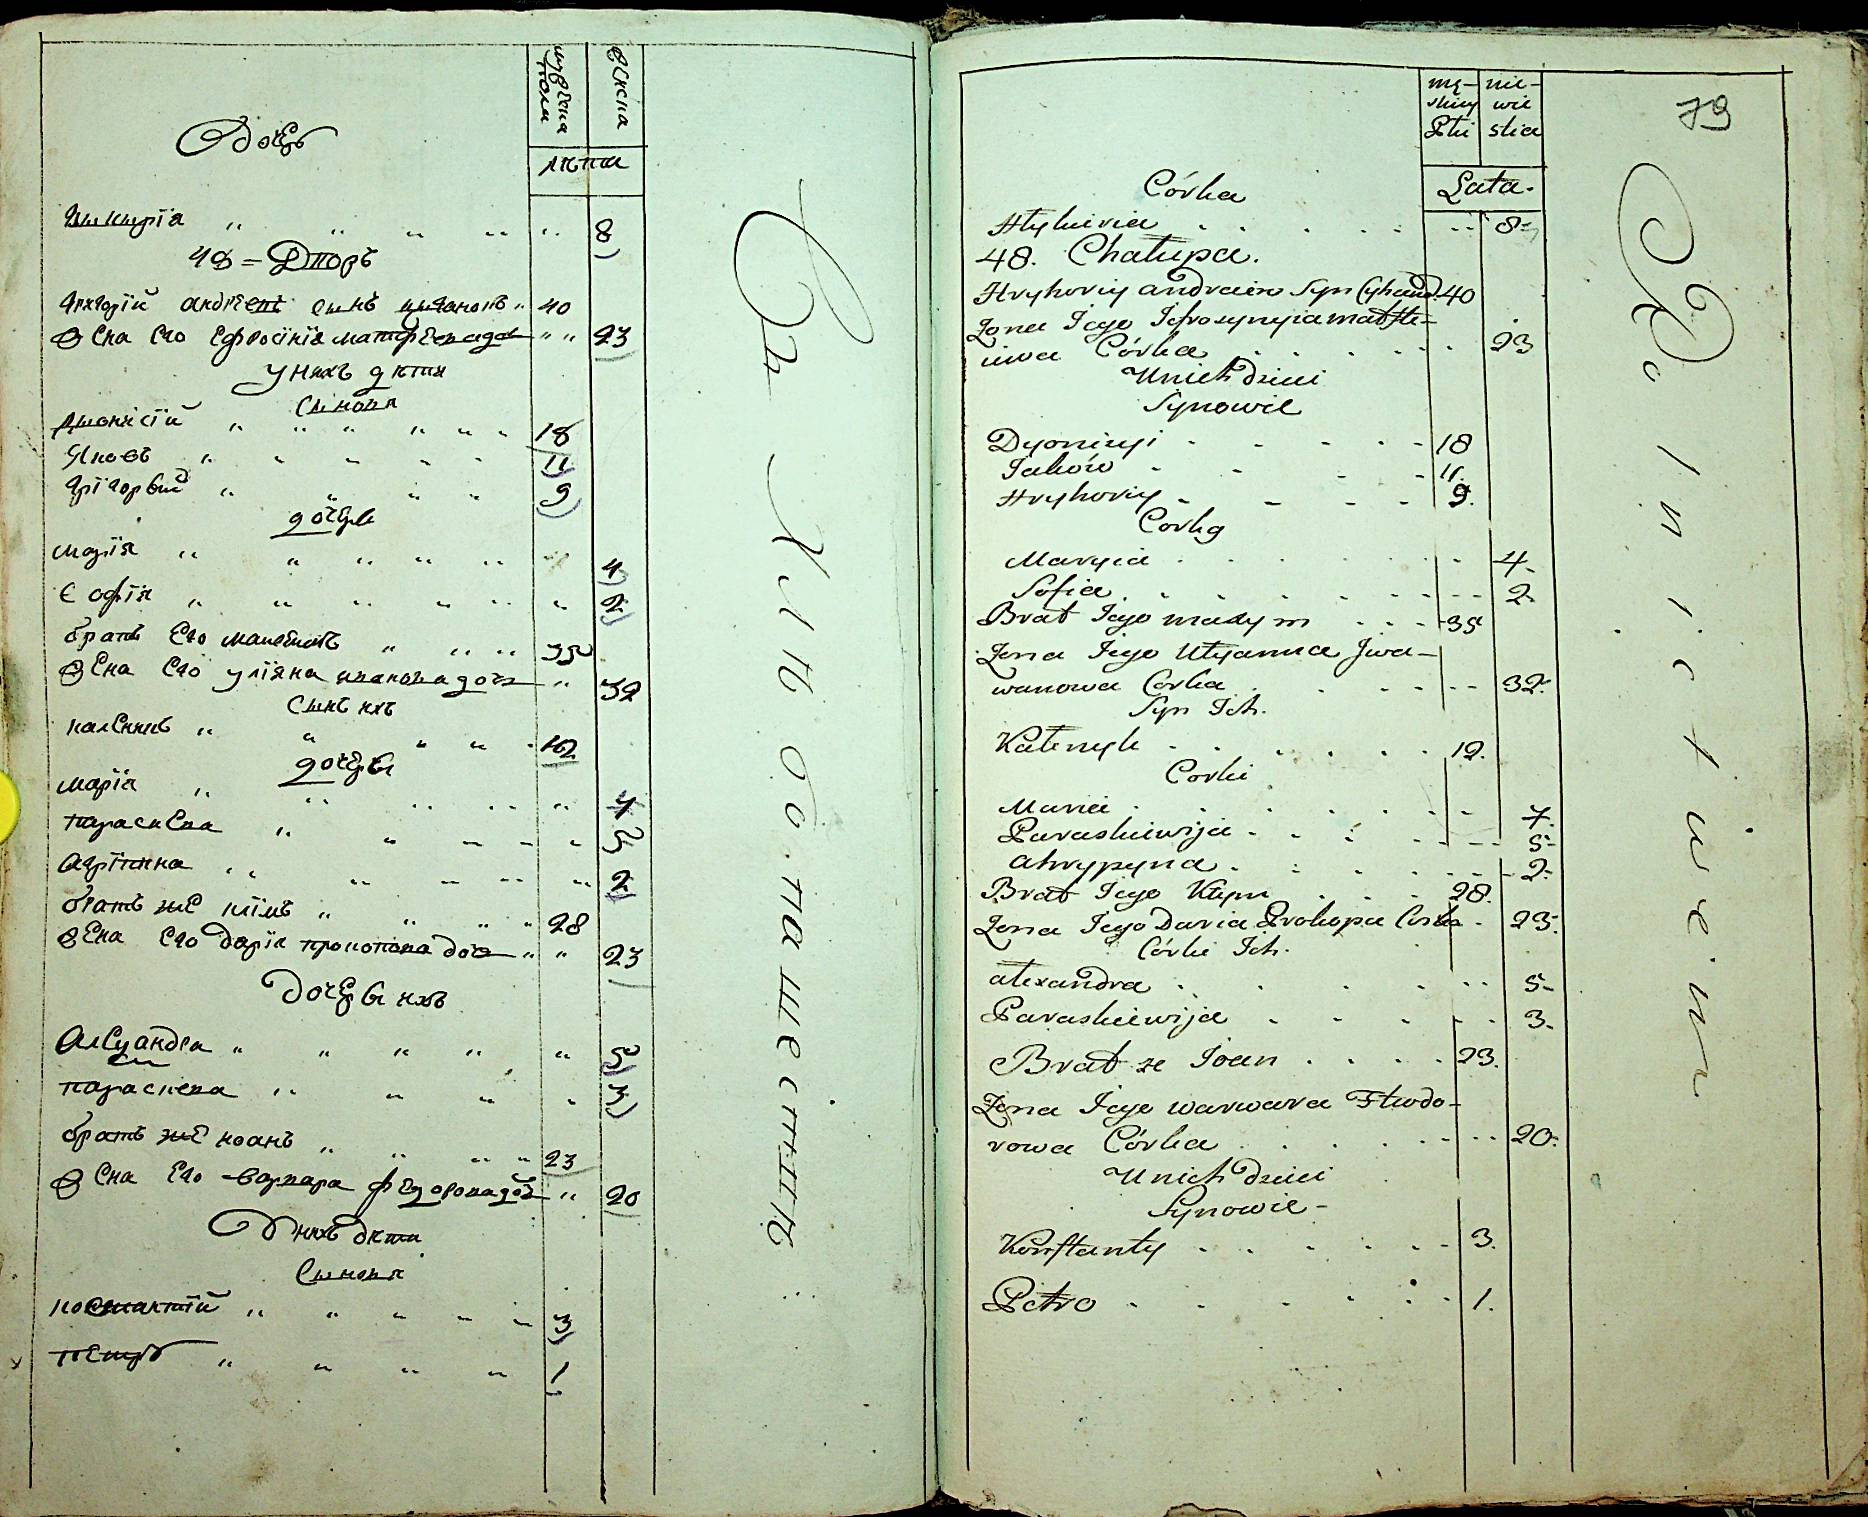 мужеска пола
женска
лѣта
Дочерь
8
48 = Дворъ
Григорій андреевъ сынъ цигановъ 40
Жена Его Ефросінія матфеева доч 23
у нихъ дѣти
Синовя
Дионисій 18
Яковъ 11
Григорвій 9
дочери
марія 4
Софія 2
братъ Его 35
Жена Его уліяна иванова доч 32
Сынъ ихъ
каленикъ 12
дочери
марія 7
параскева 5
агріпина 2
братъ же клімъ 28
Жена Его дарія прокопова доч 23
Дочери ихъ
Алеѯандра 5
параскева 3
братъ же иоанъ 23
Жена Его варвара федорова доч 20
У нихъ дѣти
Синовя
костантій 3
петръ 1
Въ Хлѣбопашествѣ
79
mę- skiey Płci
nie- wie- scia
Lata.
Córka
Hlykiria 8
48. Chałupa.
Hryhoriy andreiw Syn Cyhand. 40
Zona Jego Jefrosynyia matfie-
iewa Córka 23
U nich dzieci
Synowie
Dyonizyi 18
Jaków 11.
Hryhoriy 9.
Corky
Maryia 4.
Sofia 2.
Brat Jego maxym 35
Zona Jego Ulyanna Jwa-
wanowa Corka 32.
Syn Ich.
Kalenyk 12.
Corki
Maria 7.
Paraskiewija 5
ahrypyna 2.
Brat Jego Klym 28.
Zona Jego Daria Prokopa Corka 23.
Córki Ich.
alexandra 5
Paraskiewija 3.
Brat ze Joan 23.
Zona Jego warwara Fteodo-
rowa Córka 20.
U nich dzieci
Synowie
Konstanty 3.
Petro 1.
Rolnictwem